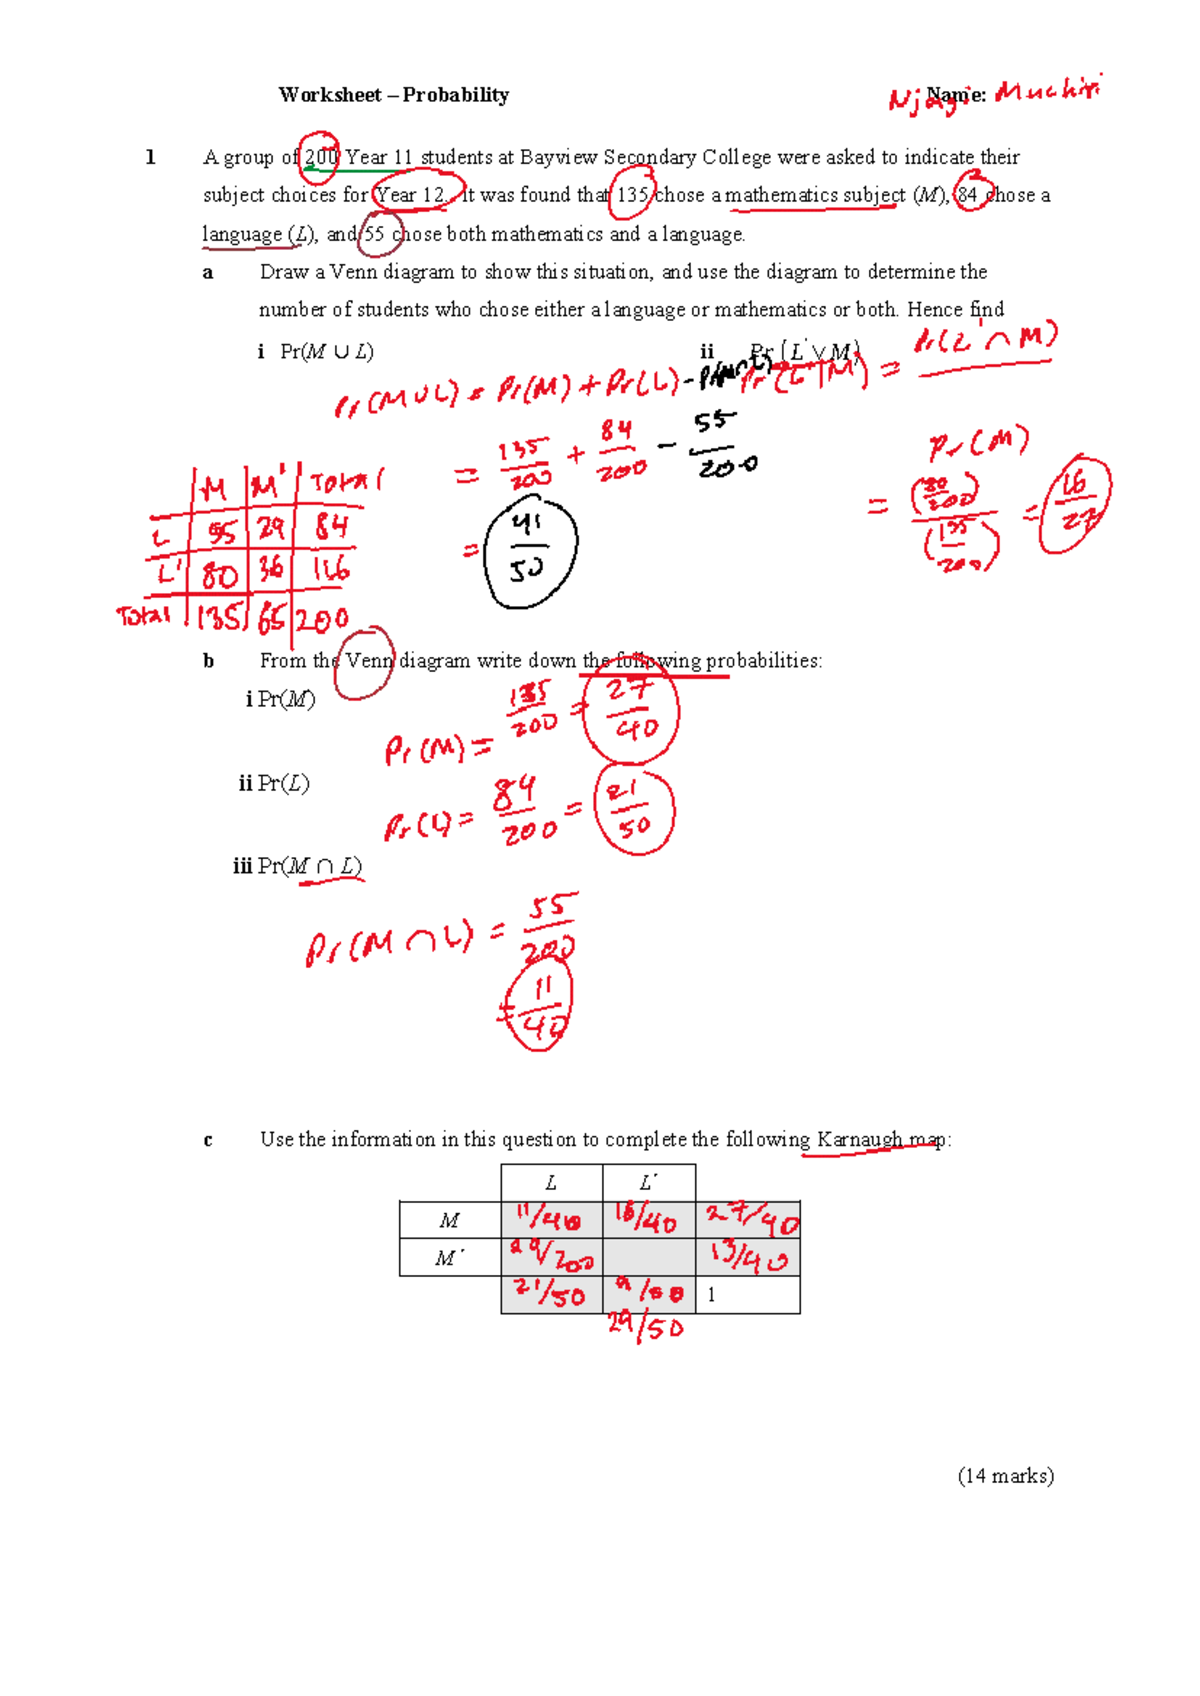 Worksheet – Probability
Name: Njagi Muchiri
1 A group of 200 Year 11 students at Bayview Secondary College were asked to indicate their
subject choices for Year 12. It was found that 135 chose a mathematics subject (M), 84 chose a
language (L), and 55 chose both mathematics and a language.
a Draw a Venn diagram to show this situation, and use the diagram to determine the
number of students who chose either a language or mathematics or both. Hence find
i Pr(M ∪ L)
ii Pr (L' ∨ M)
Pr(M∪L) = Pr(M) + Pr(L) - Pr(M∩L)
= 135/200 + 84/200 - 55/200
= 41/50
Pr(L'|M) = Pr(L'∩M)
Pr(M)
= (80/200)/(135/200) = 16/27
M M' Total
L 55 29 84
L' 80 36 116
Total 135 65 200
b From the Venn diagram write down the following probabilities:
i Pr(M)
Pr(M) = 135/200 = 27/40
ii Pr(L)
Pr(L) = 84/200 = 21/50
iii Pr(M ∩ L)
Pr(M∩L) = 55/200
= 11/40
c Use the information in this question to complete the following Karnaugh map:
L L'
M 11/40 16/40 27/40
M' 29/200 13/40
21/50 1
29/50
(14 marks)